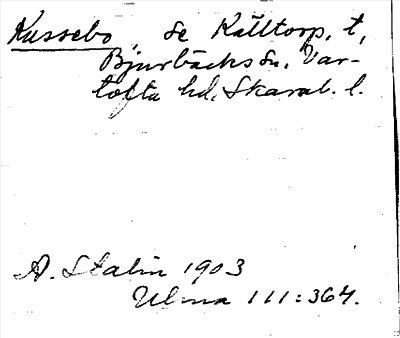 Kussebo, se Källtorp, t,
Bjurbäcks sn, Var-
tofta hd, Skarab. l.
A. Stalin 1903
Ulma 111:364.